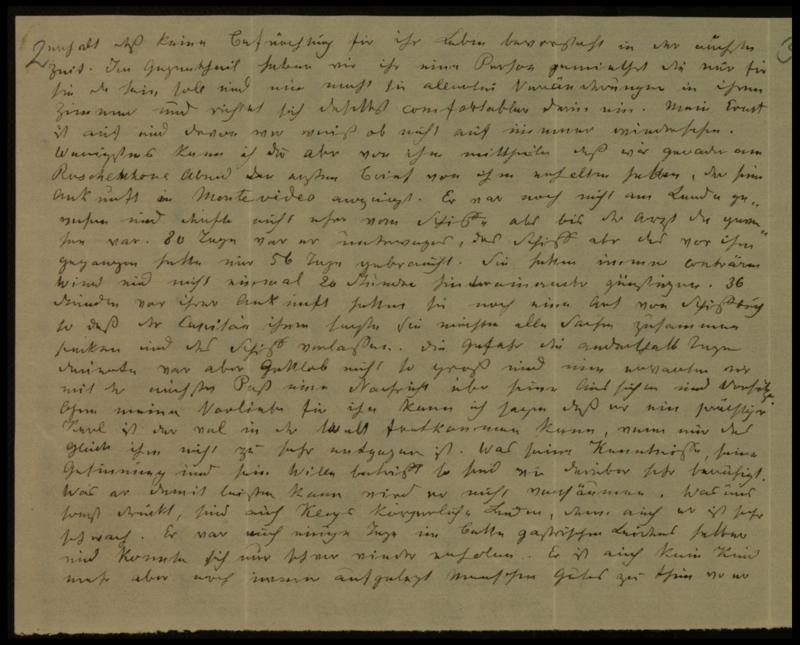 2 erhalt daß keine Befürchtung für ihr Leben bevorsteht in der nächsten
Zeit. Im Gegentheil haben wir ihr eine Person gemiethet die nur für
sie da sein soll und nun macht sie allerlei Veränderungen in ihrem
Zimmer und richtet sich daselbst comfortabler darin ein. Mein Ernst
ist auf und davon wer weiß ob nicht auf nimmer wiedersehen.
Wenigstens kann ich dir aber von ihm mittheilen daß wir gerade am
Abend den ersten Brief von ihm erhalten hatten, der seine
Ankunft in Montevideo anzeigt. Er war noch nicht am Lande ge-
wesen und durfte nicht eher vom Schiffe als bis der Arzt da gewe-
sen war. 80 Tage war er unterweges, das Schiff aber das vor ihm
gegangen hatte nur 56 Tage gebraucht. Sie hatten immer conträren
Wind und nicht einmal 20 Stunden hintereinander günstigen. 36
Stunden vor ihrer Ankunft hatten sie noch eine Art von Schiffbruch
so daß der Capitän ihnen sagte sie möchten alle Sachen zusammen
packen und das Schiff verlassen. Die Gefahr die anderthalb Tage
dauerte war aber Gottlob nicht so groß und nun erwarten wir
mit der nächsten Post eine Nachricht über seine Aussichten und
Ohne meine Vorliebe für ihn kann ich sagen daß er ein prächtiger
Kerl ist der wol in der Welt fortkommen kann, wenn nur das
Glück ihm nicht zu sehr entgegen ist. Was seine Kenntnisse, seine
Gesinnung und sein Wille betrifft so sind wir darüber sehr beruhigt.
Was er damit leisten kann wird er nicht versäumen. Was uns
sonst drückt, sind auch körperliche Leiden, denn auch er ist sehr
schwach. Er war auch einige Tage im Bette gastrischen Leidens halber
und konnte sich nur schwer wieder erholen. Er ist auch kein Kind
mehr aber noch immer aufgelegt Menschen Gutes zu thun wo er